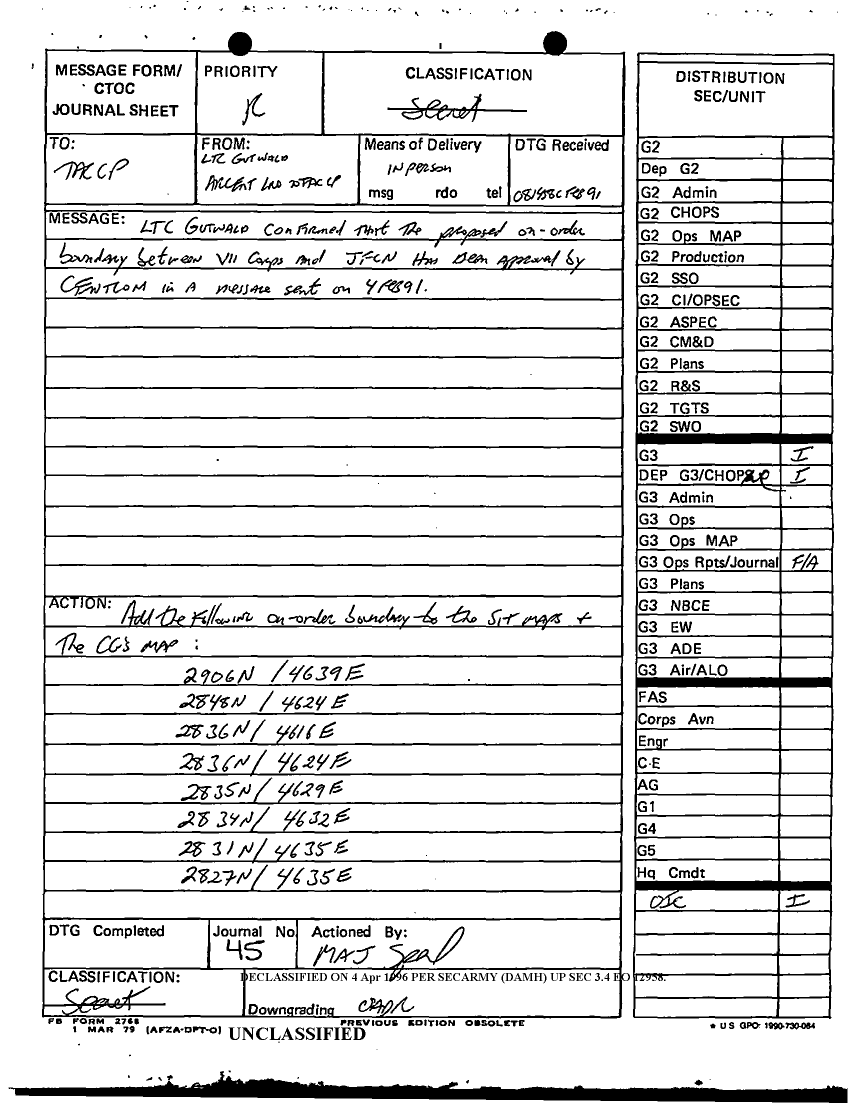 MESSAGE FORM/
CTOC
JOURNAL SHEET
PRIORITY
R
CLASSIFICATION
Secret
TO:
TACCP
FROM:
LTC GUTWALD
ARCENT LNO
Means of Delivery
IN PERSON
msg rdo tel
DTG Received
FEB 91
MESSAGE: LTC GUTWALD Confirmed that the proposed on-order
boundary between VII Corps and JFCN Has Been Approval by
CENTCOM in A message sent on 4 FEB 91.
ACTION: Add the Following on-order boundary to the SIT MAPS +
The CG's MAP :
2906N / 4639E
2848N / 4624E
2836N / 4616E
2836N / 4624E
2835N / 4629E
2834N / 4632E
2831N / 4635E
2827N / 4635E
DTG Completed
Journal No
45
Actioned By:
MAJ Seal
CLASSIFICATION:
Secret
DECLASSIFIED ON 4 Apr 1996 PER SECARMY (DAMH) UP SEC 3.4 EO 12958.
Downgrading OADR
FB FORM 2768
1 MAR 79 (AFZA-DPT-O)
UNCLASSIFIED
PREVIOUS EDITION OBSOLETE
DISTRIBUTION
SEC/UNIT
G2
Dep G2
G2 Admin
G2 CHOPS
G2 Ops MAP
G2 Production
G2 SSO
G2 CI/OPSEC
G2 ASPEC
G2 CM&D
G2 Plans
G2 R&S
G2 TGTS
G2 SWO
G3 I
DEP G3/CHOPS I
G3 Admin
G3 Ops
G3 Ops MAP
G3 Ops Rpts/Journal F/A
G3 Plans
G3 NBCE
G3 EW
G3 ADE
G3 Air/ALO
FAS
Corps Avn
Engr
C-E
AG
G1
G4
G5
Hq Cmdt
OIC I
* U S GPO: 1990-730-084